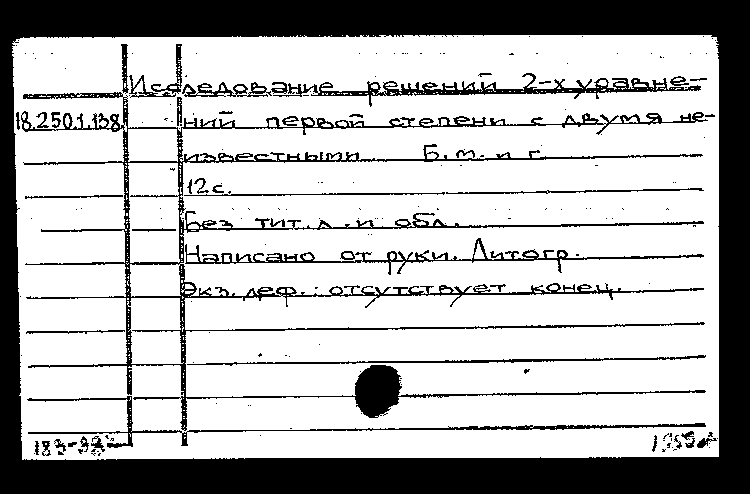 Исследование решений 2-х уравне-
18.250.1.138 ний первой степени с двумя не-
известными Б.м. и г.
12 с.
Без тит. л. и обл.
Написано от руки. Литогр.
Экз. деф.: отсутствует конец.